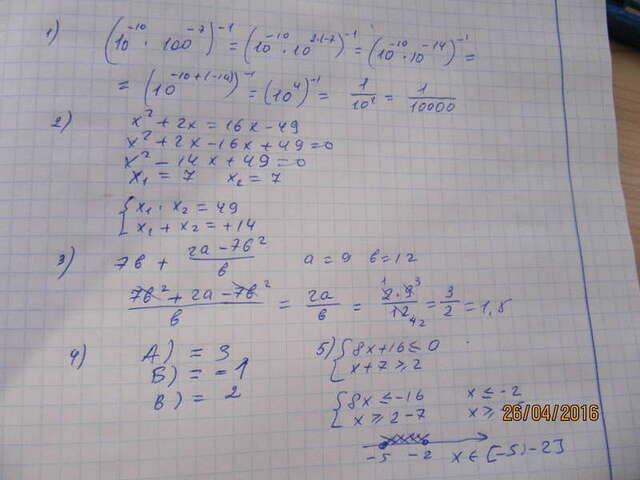 1) (10^-10 · 100^-7)^-1 = (10^-10 · 10^2·(-7))^-1 = (10^-10 · 10^-14)^-1 =
= (10^-10+(-14))^-1 = (10^4)^-1 = 1/10^4 = 1/10000
2) x² + 2x = 16x - 49
x² + 2x - 16x + 49 = 0
x² - 14x + 49 = 0
x₁ = 7 x₂ = 7
{ x₁ · x₂ = 49
x₁ + x₂ = +14
3) 7в + (2а - 7в²)/в а = 9 в = 12
(7в² + 2а - 7в²)/в = 2а/в = 2·9/12 = 3/2 = 1,5
4) А) = 3
Б) = -1
В) = 2
5) { 8x + 16 ≤ 0
x + 7 ≥ 2
{ 8x ≤ -16 x ≤ -2
x ≥ 2 - 7 x ≥
26/04/2016
-5 -2 x ∈ [-5; -2]